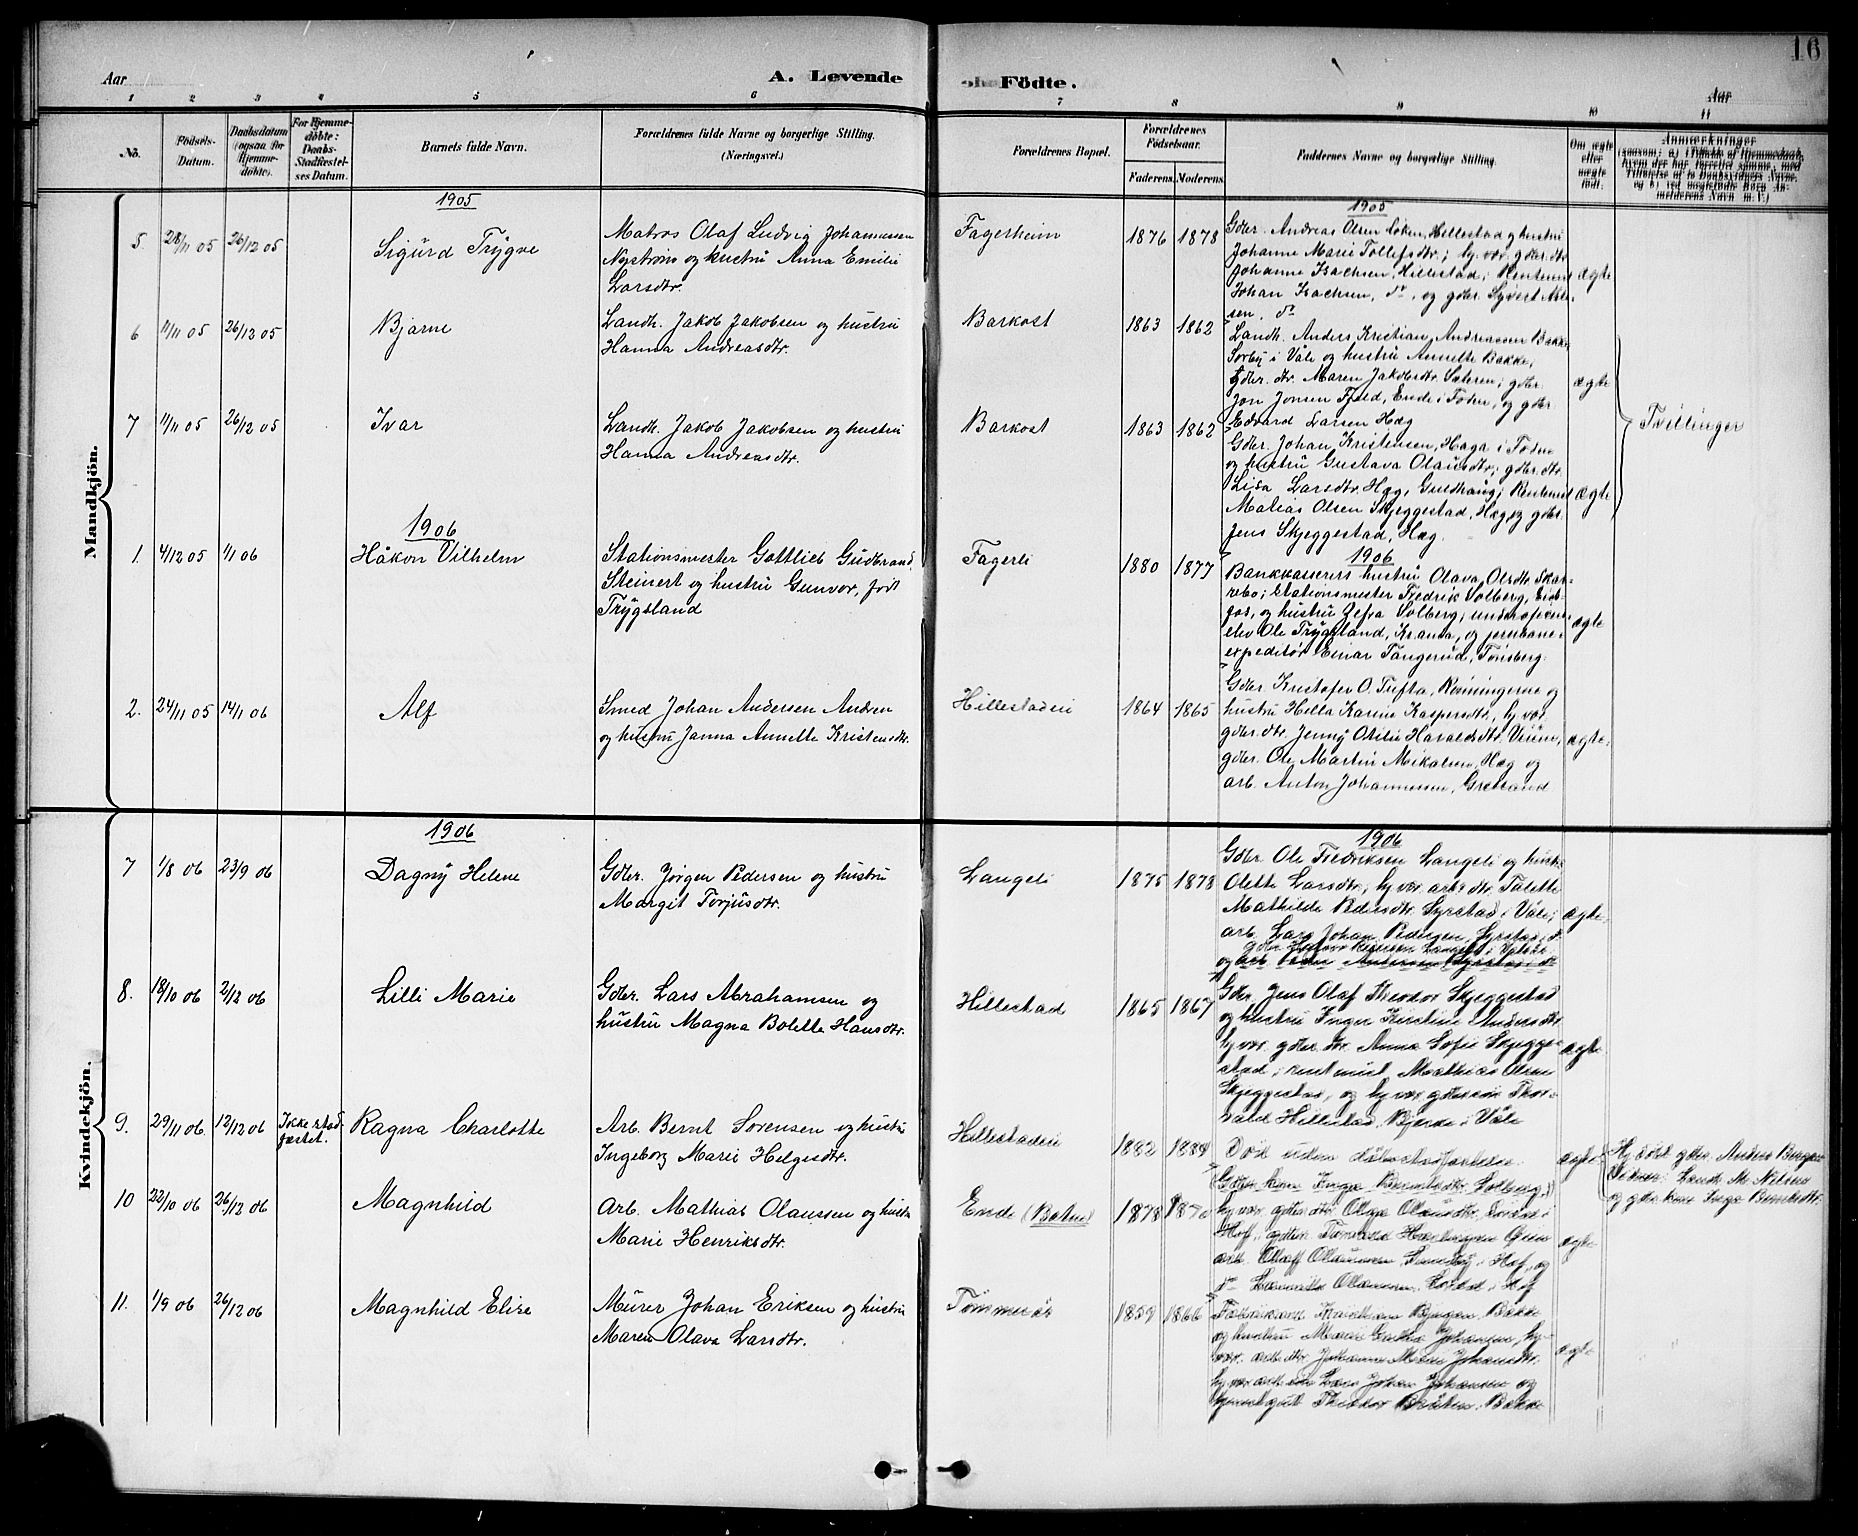 16
Aar
A. Levende
Födte.
Aar
1 2 3 4 5 6 7 8 9 10 11
No.
Födsels-Datum.
Daabsdatum (ogsaa for Hjemme-döbte).
For Hjemme-döbte: Daabs-Stadfæstel-ses Datum.
Barnets fulde Navn.
Forældrenes fulde Navne og borgerlige Stilling. (Næringsvei.)
Forældrenes Bopæl.
Forældrenes Födselsaar.
Faderens. Moderens.
Faddernes Navne og borgerlige Stilling.
Om ægte eller uægte födt.
Anmærkninger
Mandkjön.
1905
1905
5. 28/11 05 26/12 05 Sigurd Trygve
Matros Olaf Ludvig Johannessen
Nystrøm og hustru Anna Emilie
Larsdtr.
Fagerheim 1876 1878
Gdbr. Andreas Olsen Løken, Hillestad og hustru
Johanne Marie Tollefsdtr.; hv. vær. gdbr. dtr.
Johanne Isachsen, Hillestad; Rentenist
Johan Isachsen, do., og gdbr. Syvert
sen, do.
ægte
6 11/11 05 26/12 05 Bjarne
Landh. Jakob Jakobsen og hustru
Hanna Andreasdtr.
Barkost 1863 1862
Landh. Anders Kristian Andreassen Bakke,
Sørby i Våle og hustru Annette Bakke,
gdbr. dtr. Maren Jakobsdtr. Sæteren; gdbr.
Jon Jonsen Fjeld, Ende i Botne, og gdbr.
Edvard Larsen Hæg
ægte
7 11/11 05 26/12 05 Ivar
Landh. Jakob Jakobsen og hustru
Hanna Andreasdtr.
Barkost 1863 1862
Gdbr. Johan Kristensen, Haga i
og hustru Gustava Olausdtr.; gdbr. dtr.
Lisa Larsdtr. Hæg, Gundhaug; Rentenist
Matias Olsen Skjeggestad, Hæg og gdbr.
Jens Skjeggestad, Hæg.
ægte
Tvillinger
1906
1906
1. 4/12 05 1/1 06 Håkon Vilhelm
Stationsmester Gottlieb Gudbrand
Steinert og hustru Gunvor, født
Trygsland
Fagerli 1880 1877
Bankkasserers hustru Olava Olsdtr. Ska-
rebo; Stationsmester Fredrik Solberg, Eids-
fos, og hustru Solberg; underoficers-
elev Ole Trygsland, Kr.ania, og jernbane-
expeditør Einar Tangerud, Tønsberg.
ægte
2. 24/11 05 14/1 06 Alf
Smed Johan Andersen
og hustru Janna Annette Kristensdtr.
Hillestadei 1864 1865
Gdbr. Kristofer O. Tufta, Rønningerne og
hustru Hella Karine Kaspersdtr., hv. vær.
gdbr. dtr. Jenny Otilie Haraldsdtr.
gdbr. Ole Martin Mikalsen, Hæg og
arb. Anton Johannessen, Gretsrand
ægte.
Kvindekjön.
1906
1906
7 1/8 06 23/9 06 Dagny Helene
Gdbr. Jørgen Pedersen og hustru
Margit Torjusdtr.
Langeli 1875 1878
Gdbr. Ole Fredriksen Langeli og hustru
Olette Larsdtr.; hv. vær. arb. dtr. Talette
Mathilde Pedersdtr. Syrstad i Våle;
arb. Lars Johan Pedersen, Syrstad i do.
og arb. Peder Andersen Syrstad i do.
ægte
8. 18/10 06 2/12 06 Lilli Marie
Gdbr. Lars Abrahamsen og
hustru Magna Bolette Hansdtr.
Hillestad 1865 1867
Gdbr. Jens Olaf Theodor Skjeggestad
og hustru Inger Kirstine Andersdtr
hv. vær. gdbr. dtr. Anna Sofie Skjegge-
stad; rentenist Mathias Olsen
Skjeggestad, og hv. vær. gdbr. søn Thor-
vald Hillestad, Bjerke i Våle
ægte
9. 29/11 06. 12/12 06 Ikke stad-fæstet. Ragna Charlotte
Arb. Bernt Sørensen og hustru
Ingeborg Marie Helgesdtr.
Hillestadei 1882 1884
Død uden dåbsstadfæstelse.
ægte
Hj. døbt gdbr. Anders Bergan
Vidner: Landh. M. Nilsen
og gdbr. kone Inga Berntsdtr.
10 22/10 06 26/12 06 Magnhild
Arb. Mathias Olaussen og hustru
Marie Henriksdtr.
Ende (Botne) 1878 1870
Gdbr. kone Inga Berntsdtr. Solberg,
hv. vær. gdbr. dtr. Olga Olausdtr.
Hof,
arb. Olaf Olaussen, i Hof, og
do. Olaussen, i Hof
ægte
11. 1/9 06 26/12 06 Magnhild Elise
Murer Johan Eriksen og hustru
Maren Olava Larsdtr.
Tømmerås 1859 1866
Bakke
og hustru Johansen, hv.
vær. arb. dtr. Johanne Marie Johansdtr.
hv. vær. arb. søn Lars Johan Johansen og
Theodor Bråten, Bakke
ægte